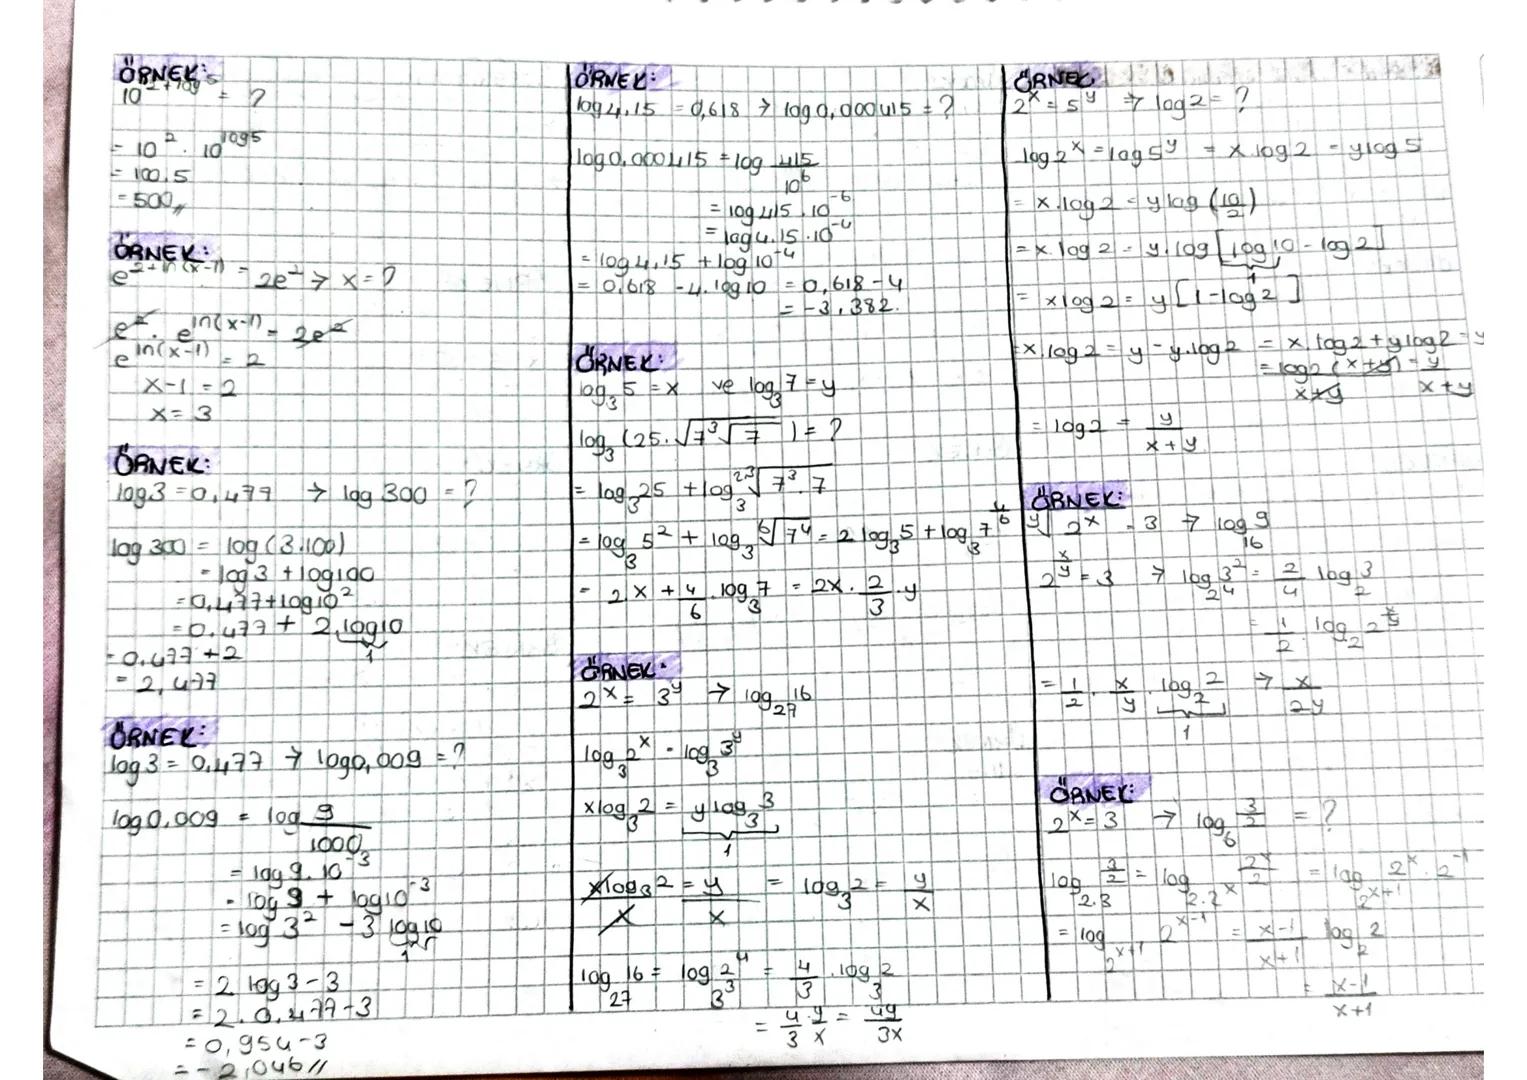 ÖRNEK:
10^2+log5 = ?
= 10^2 . 10^log5
= 100.5
= 500,,
ÖRNEK:
e^2+ln(x-1) = 2e^2 → x = ?
e^2 . e^ln(x-1) = 2e^2
e^ln(x-1) = 2
x-1 = 2
x = 3
ÖRNEK:
log3 = 0,477 → log 300 = ?
log 300 = log(3.100)
= log3 + log100
= 0,477 + log10^2
= 0,477 + 2.log10
1
= 0,477 + 2
= 2,477
ÖRNEK:
log3 = 0,477 → log0,009 = ?
log0,009 = log 9/1000
= log9.10^-3
= log9 + log10^-3
= log 3^2 - 3 log10
1
= 2 log3 - 3
= 2.0,477-3
= 0,954-3
= -2,046//
ÖRNEK:
log4,15 = 0,618 → log0,000415 = ?
log0,000415 = log 415/10^6
= log415.10^-6
= log4.15.10^-4
= log4,15 + log10^-4
= 0,618 - 4.log10 = 0,618-4
= -3,382.
ÖRNEK:
log_3 5 = x ve log_3 7 = y
log_3 (25.√7^3√7) = ?
= log_3 25 + log_3 2.3√7^3.7
= log_3 5^2 + log_3 6√7^4 = 2 log_3 5 + log_3 7^4/6
= 2x + 4/6 . log_3 7 = 2x . 2/3 . y
ÖRNEK:
2^x = 3^y → log_27 16
log_3 2^x = log_3 3^y
xlog_3 2 = ylog_3 3
1
xlog_3 2/x = y/x = log_3 2 = y/x
log_27 16 = log_3^3 2^4 = 4/3 . log_3 2
= 4/3 . y/x = 4y/3x
ÖRNEK
2^x = 5^y → log2 = ?
log2^x = log5^y = x log2 = ylog5
= x.log2 = ylog(10/2)
= x.log2 = y.log[log10 - log2]
1
= xlog2 = y[1-log2]
= x.log2 = y - y.log2 = x.log2 + ylog2 = y
= log2(x+y)/x+y = y/x+y
= log2 = y/x+y
ÖRNEK:
y√2^x = 3 → log_16 9
2^x/y = 3 → log_2^4 3^2 = 2/4 log_2 3
= 1/2 . log_2 2^x/y
= 1/2 . x/y . log_2 2 → x/2y
1
ÖRNEK:
2^x = 3 → log_6 3/2 = ?
log_2.3 3/2 = log_2.2^x 2^x/2 = log_2^x+1 2^x . 2^-1
= log_2^x+1 2^x-1 = x-1/x+1 log_2 2
= x-1/x+1